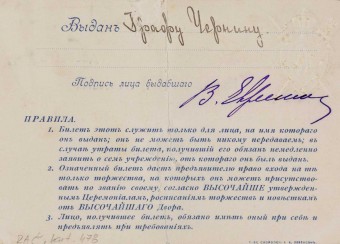 Выданъ Графу Чернину.
Подпись лица выдавшаго
ПРАВИЛА.
1. Билетъ этотъ служитъ только для лица, на имя котораго
онъ выданъ; онъ не можетъ быть никому передаваемъ; въ
случаѣ утраты билета, получившій его обязанъ немедленно
заявить о семъ учрежденію, отъ котораго онъ былъ выданъ.
2. Означенный билетъ даетъ предъявителю право входа на
тѣ только торжества, на которыхъ онъ можетъ присутство-
вать по званію своему, согласно ВЫСОЧАЙШЕ утвержден-
нымъ Церемоніаламъ, росписаніямъ торжествъ и повѣсткамъ
отъ ВЫСОЧАЙШАГО Двора.
3. Лицо, получившее билетъ, обязано имѣть оный при себѣ и
предъявлять при требованіяхъ.